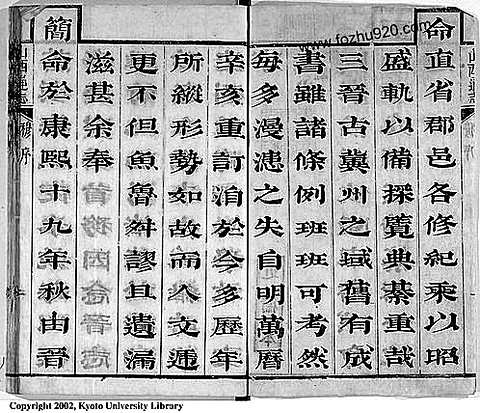 命直省郡邑各修紀乘以昭
盛軌以備採覽典綦重哉
三晉古冀州之域舊有成
書雖諸條例班班可考然
每多漫漶之失自明萬曆
辛亥重訂洎於今多歷年
所縱形勢如故而人文遞
更不但魚魯舛謬且遺漏
滋甚余奉
簡命於康熙十九年秋由晉
山西通志
序
www.fozhu920.com
Copyright 2002, Kyoto University Library